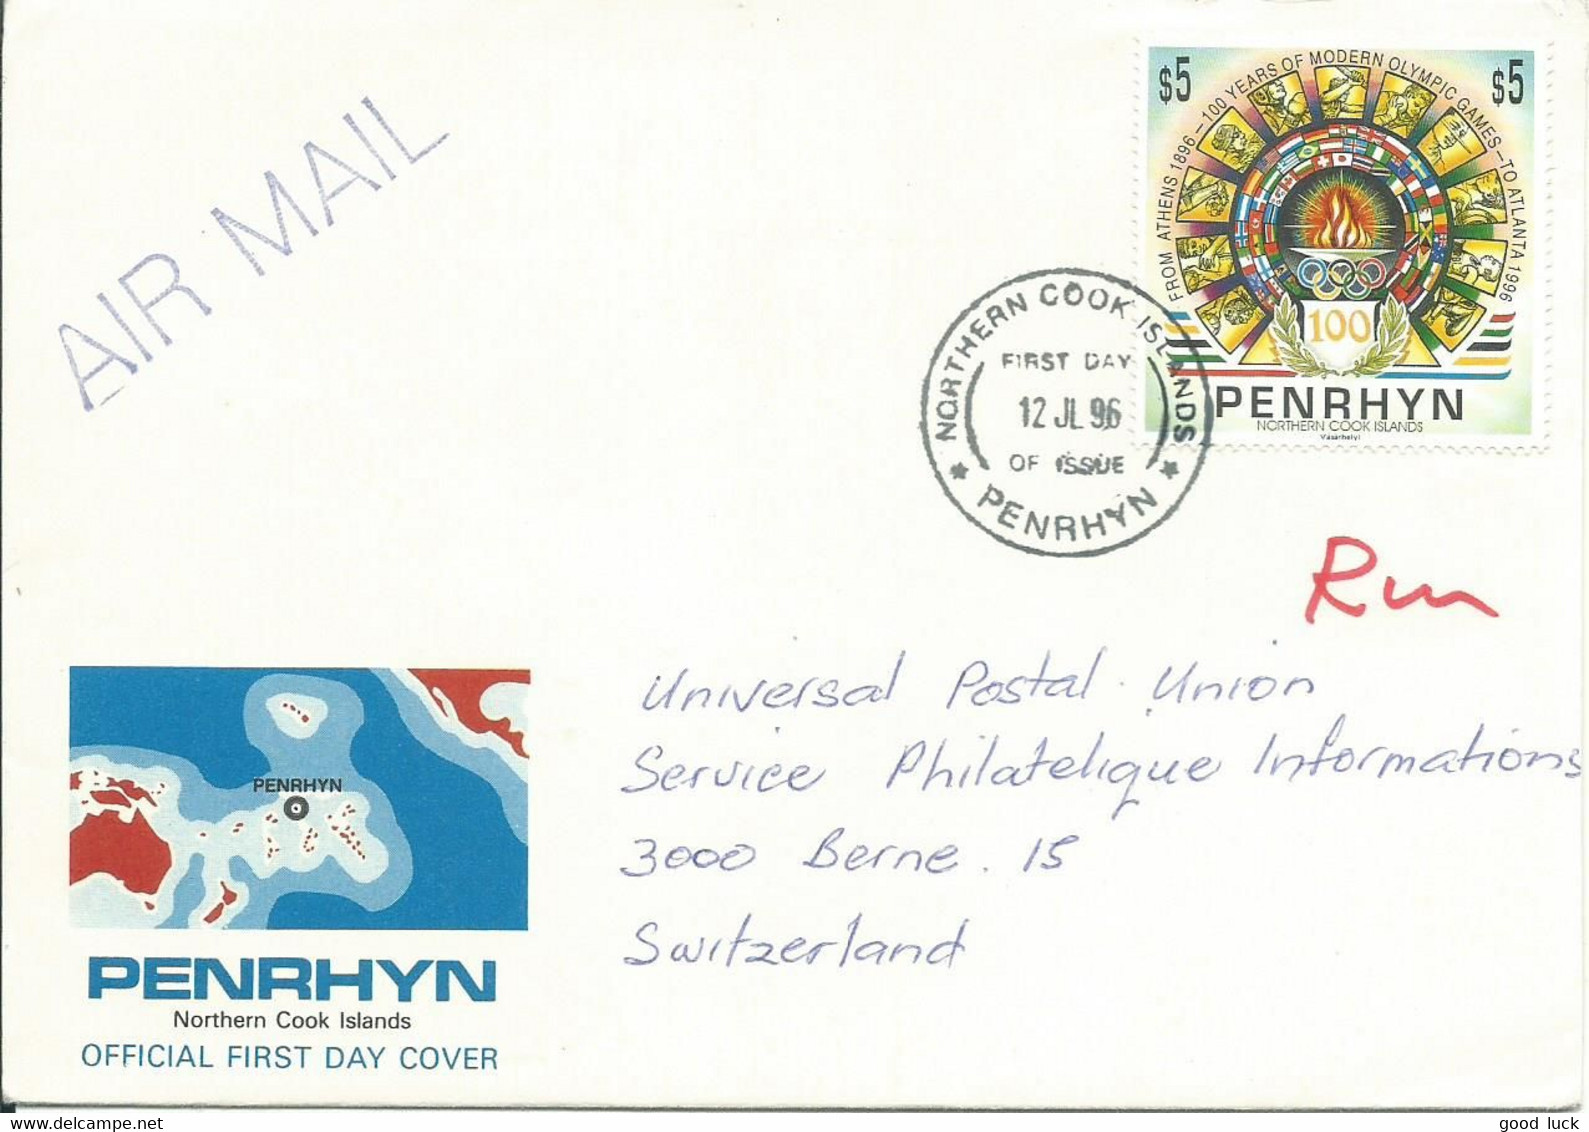 AIR MAIL
$5 $5
FROM ATHENS 1896-100 YEARS OF MODERN OLYMPIC GAMES-TO ATLANTA 1996
100
PENRHYN
NORTHERN COOK ISLANDS
Vásárhelyi
NORTHERN COOK ISLANDS
FIRST DAY
12 JL 96
OF ISSUE
PENRHYN
Universal Postal Union
Service Philatelique Informations
3000 Berne. 15
Switzerland
PENRHYN
PENRHYN
Northern Cook Islands
OFFICIAL FIRST DAY COVER
www.delcampe.net
good luck